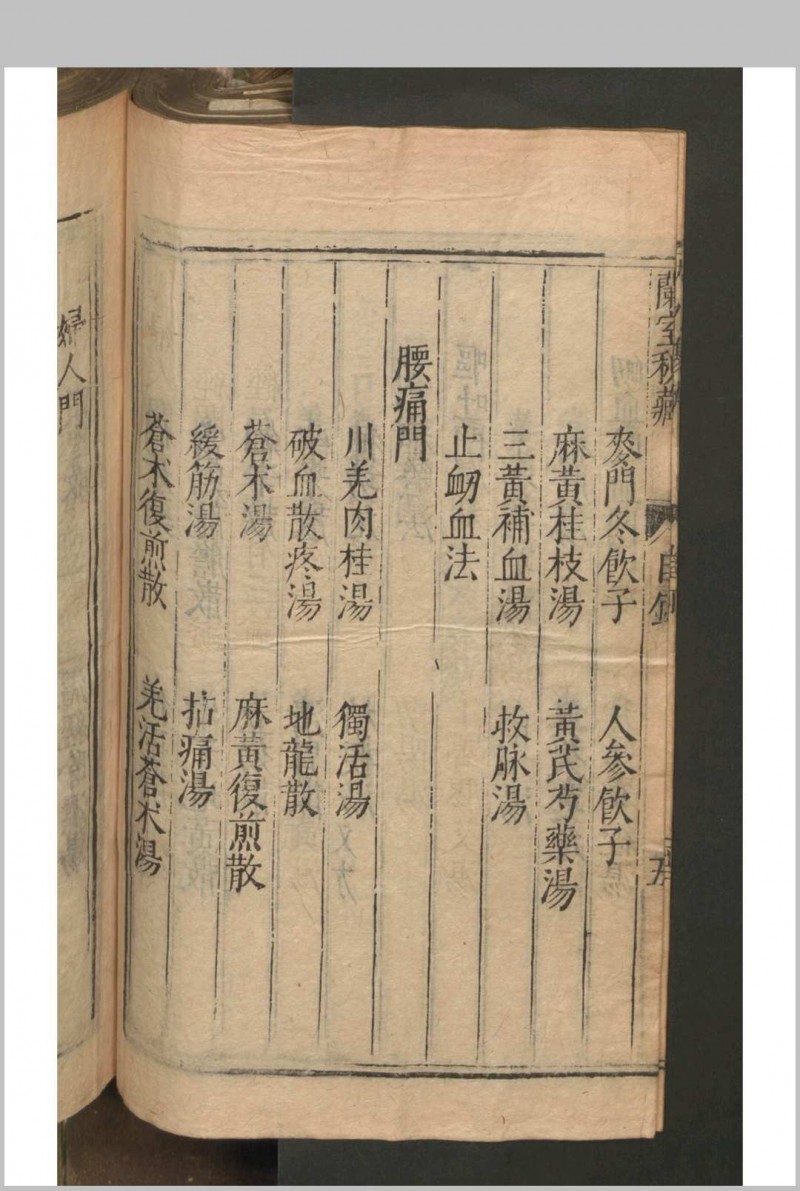 蘭室秘藏 目錄 五
麥門冬飲子 人參飲子
麻黃桂枝湯 黃芪芍藥湯
三黃補血湯 救脉湯
止衂血法
腰痛門
川羗肉桂湯 獨活湯
破血散疼湯 地龍散
蒼术湯 麻黃復煎散
緩筋湯 拈痛湯
蒼术復煎散 羗活蒼术湯
婦人門